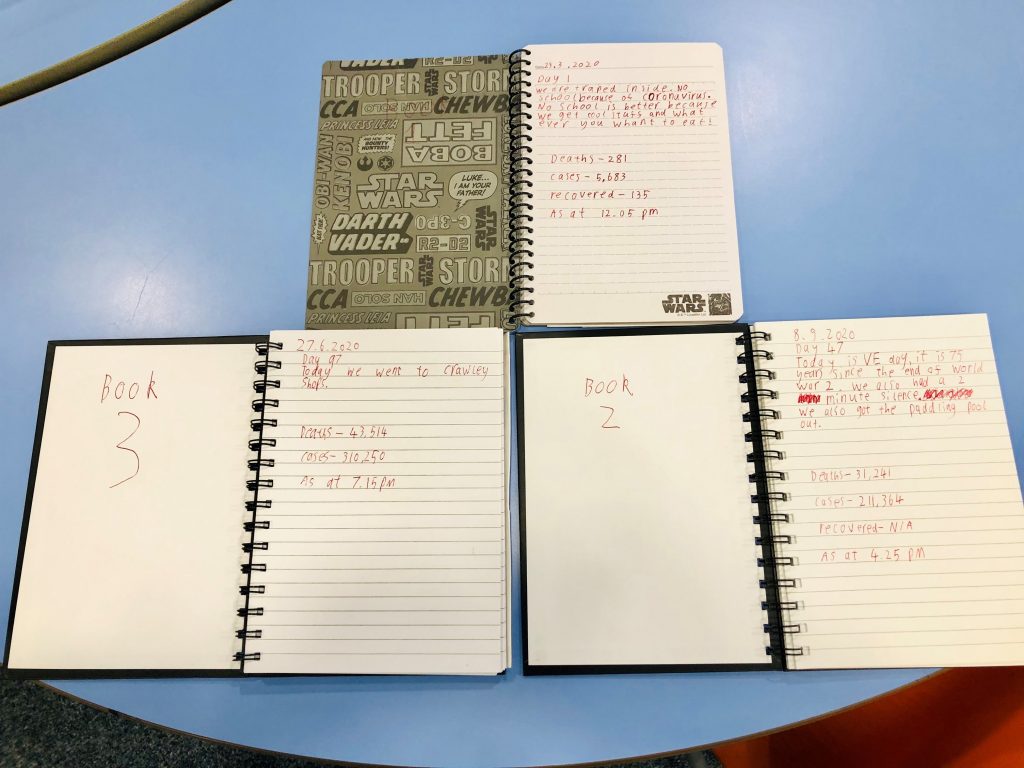 VADER R2-D2 BOBA
TROOPER STAR WARS STOR
CCA HAN SOLO CHEWB
PRINCESS LEIA
OBI-WAN KENOBI
BOUNTY HUNTERS!
BOBA FETT
STAR WARS
LUKE... I AM YOUR FATHER!
DARTH VADER
C-3PO
R2-D2
STAR WARS
TROOPER STAR WARS STOR
CCA HAN SOLO CHEWB
PRINCESS LEIA
23.3.2020
Day 1
We are traped inside. No
school because of coronavirus.
No School is better because
we get and what
ever you whant to eat!
Deaths - 281
cases - 5,683
recovered - 135
As at 12.05 pm
STAR WARS
Book
3
27.6.2020
Day 97
Today we went to Crawley
Shops.
Deaths - 43,514
cases - 310,250
As at 7.15pm
Book
2
8.5.2020
Day 47
Today is VE day, it is 75
years since the end of World
War 2. We also had a 2
minute silence.
We also got the paddling pool
out.
Deaths - 31,241
cases - 211,364
recovered - N/A
As at 4.25 pm